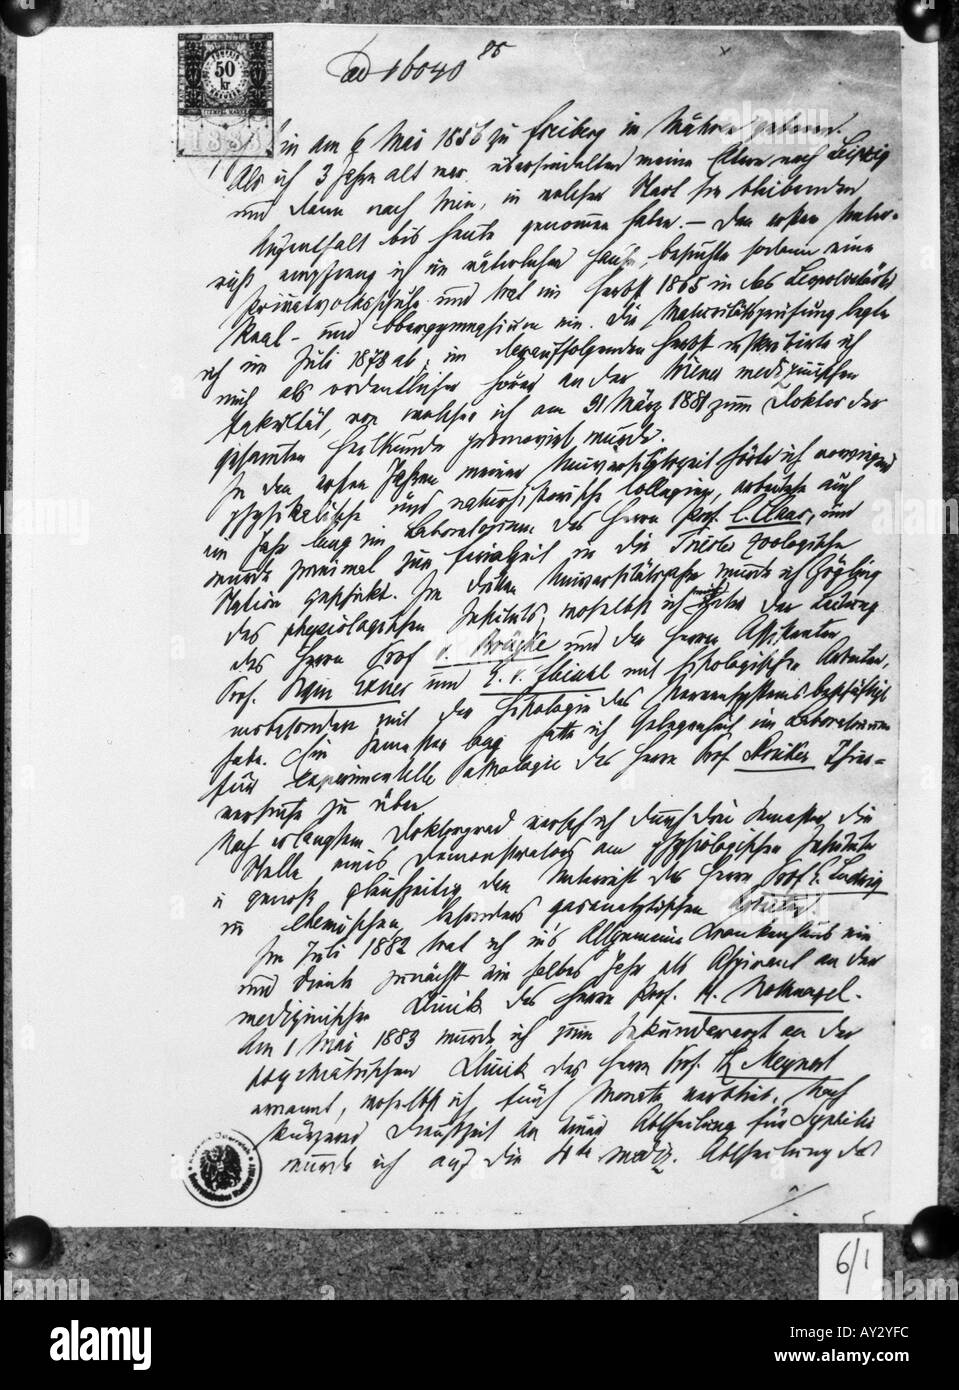 50
kr
1883
ad 16040 85
bin am 6 Mai 1856 zu Freiberg in Mähren geboren.
Als ich 3 Jahre alt war übersiedelten meine Eltern nach Leipzig
und dann nach Wien, in welcher Stadt sie bleibenden
Aufenthalt bis heute genommen haben. – Den ersten Unter-
richt empfing ich im väterlichen Hause, besuchte sodann eine
Privatvolksschule und trat im Herbst 1865 in das Leopoldstädter
Real- und Obergymnasium ein. Die Maturitätsprüfung legte
ich im Juli 1873 ab, im darauffolgenden Herbst inskribirte ich
mich als ordentlicher Hörer an der Wiener medizinischen
Fakultät, von welcher ich am 31 März 1881 zum Doktor der
gesamten Heilkunde promovirt wurde.
In den ersten Jahren meiner Universitätszeit hörte ich vorwiegend
physikalische und naturhistorische Collegien, arbeitete auch
ein Jahr lang im Laboratorium des Herrn Prof. C. Claus, und
wurde zweimal zur Ferialzeit in die Triester zoologische
Station geschickt. Im dritten Universitätsjahr wurde ich Zögling
des physiologischen Instituts, woselbst ich unter der Leitung
des Herrn Prof v. Brücke und der Herrn Assistenten
Prof. Sigm Exner und E. v. Fleischl mit histologischen Arbeiten,
insbesondere mit der Histologie des Nervensystems beschäftigt
habe. Ein Semester lang hatte ich Gelegenheit im Laboratorium
für experimentelle Pathologie des Herrn Prof Stricker Thier-
versuche zu üben
Nach erlangtem Doktorgrad versah ich durch drei Semester die
Stelle eines Demonstrators am physiologischen Institute
u genoß gleichzeitig den Unterricht des Herrn Prof E. Ludwig
in chemischen, besonders gasanalytischen Arbeiten
Im Juli 1882 trat ich in's Allgemeine Krankenhaus ein
und diente zunächst ein halbes Jahr als Aspirant an der
medizinischen Klinik des Herrn Prof. H. Nothnagel.
Am 1 Mai 1883 wurde ich zum Sekundararzt an der
psychiatrischen Klinik des Herrn Prof. Th Meynert
ernannt, woselbst ich fünf Monate verblieb. Nach
kürzerer Dienstzeit an einer Abtheilung für Syphilis
wurde ich auf die 4te mediz. Abtheilung des
6/1
alamy
Image ID: AY2YFC
www.alamy.com